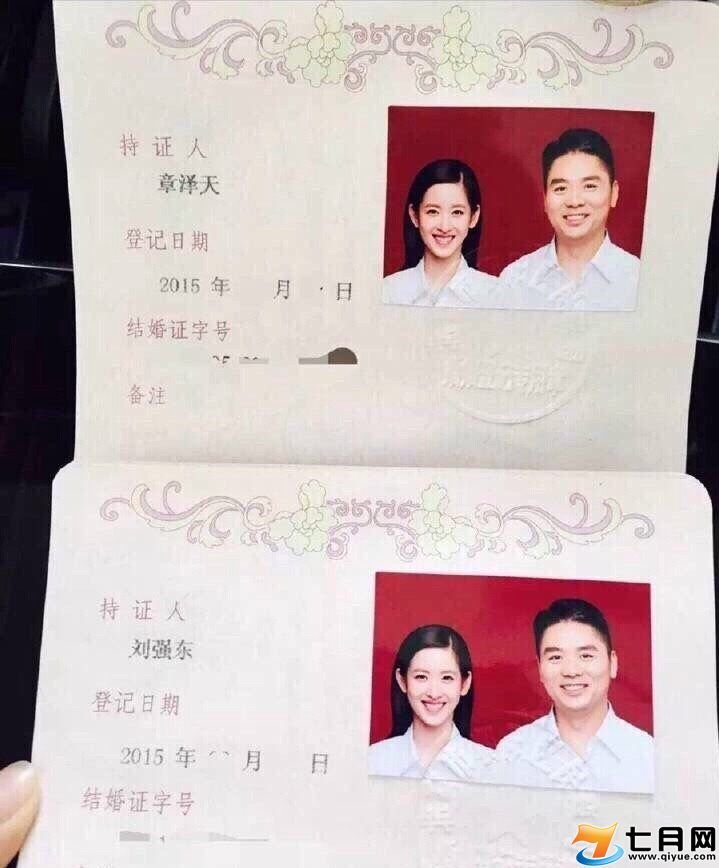 持证人
章泽天
登记日期
2015 年 月 日
结婚证字号
备注
持证人
刘强东
登记日期
2015 年 月 日
结婚证字号
七月网
www.qiyue.com